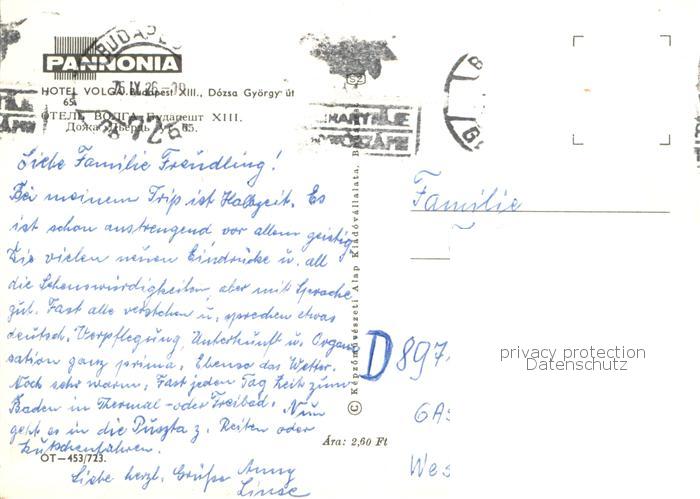 BUDAPEST
PANNONIA
75 IX 26
HOTEL VOLGA Budapest XIII., Dózsa György út
65.
ОТЕЛЬ ВОЛГА Будапешт XIII.
Дожа Дьердь 65.
Liebe Familie Freudling!
Bei meinem Trip ist Halbzeit. Es
ist schon anstrengend vor allem geistig
Die vielen neuen Eindrücke u. all
die Sehenswürdigkeiten, aber mit Sprache
gut. Fast alle verstehen u. sprechen etwas
deutsch. Verpflegung, Unterkunft u. Organi
sation ganz prima. Ebenso das Wetter.
Noch sehr warm, Fast jeden Tag Zeit zum
Baden in Thermal- oder Freibad. Nun
geht es in die Puszta z. Reiten oder
Kutschenfahren.
Liebe herzl. Grüße Anny
Linse
OT—453/723.
Ára: 2,60 Ft
© Képzőművészeti Alap Kiadóvállalata, B
Familie
D 897
GA
Wes
privacy protection
Datenschutz